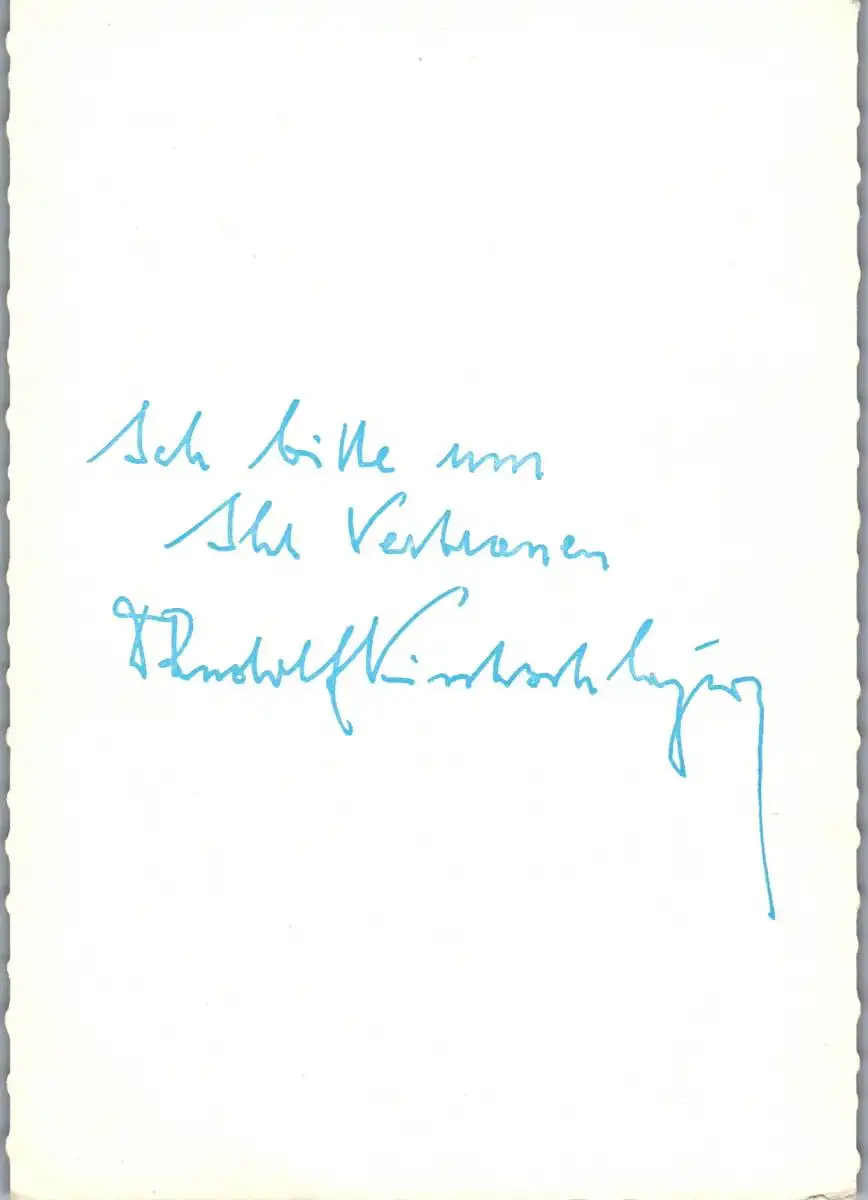 Ich bitte um
Ihr Vertrauen
Rudolf Kirchschläger